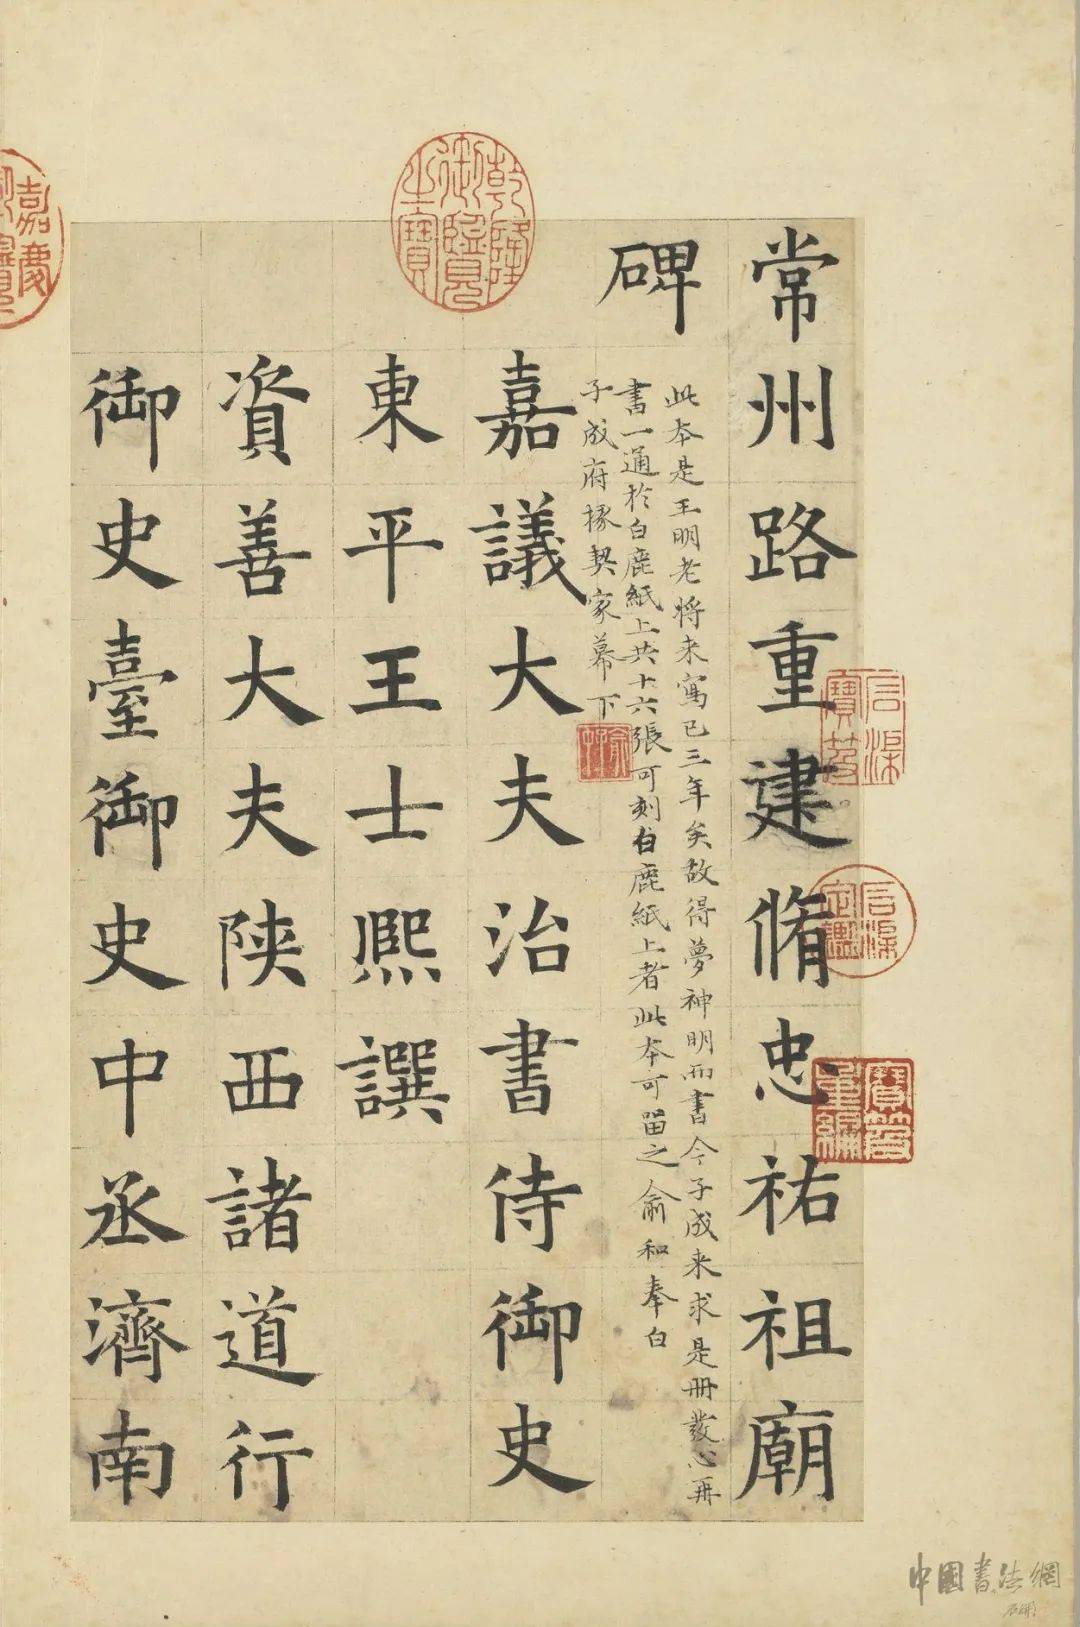 常州路重建脩忠祐祖廟
碑
此本是王明老將来寫已三年矣故得夢神明而書今子成来求是冊發心再
書一通於白鹿紙上共十六張可刻白鹿紙上者此本可留之俞和奉白
子成府掾契家幕下
嘉議大夫治書侍御史
東平王士熙譔
資善大夫陝西諸道行
御史臺御史中丞濟南
乾隆御覽之寶
嘉慶
石渠寶笈
石渠定鑑
寶笈重編
中國書法網